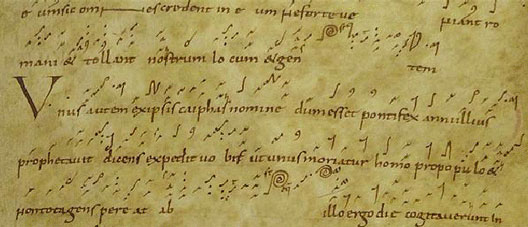 e umsic om escredent in e um neforte ve niant ro
mani & tollant nostrum lo cum & gen tem
Vnus autem exipsis caiphas nomine dum esset pontifex anni illius
prophetavit dicens expedit vo bis ut unus moriatur homo propopulo &
nontotagens pere at ab illo ergo die cogitaverunt in